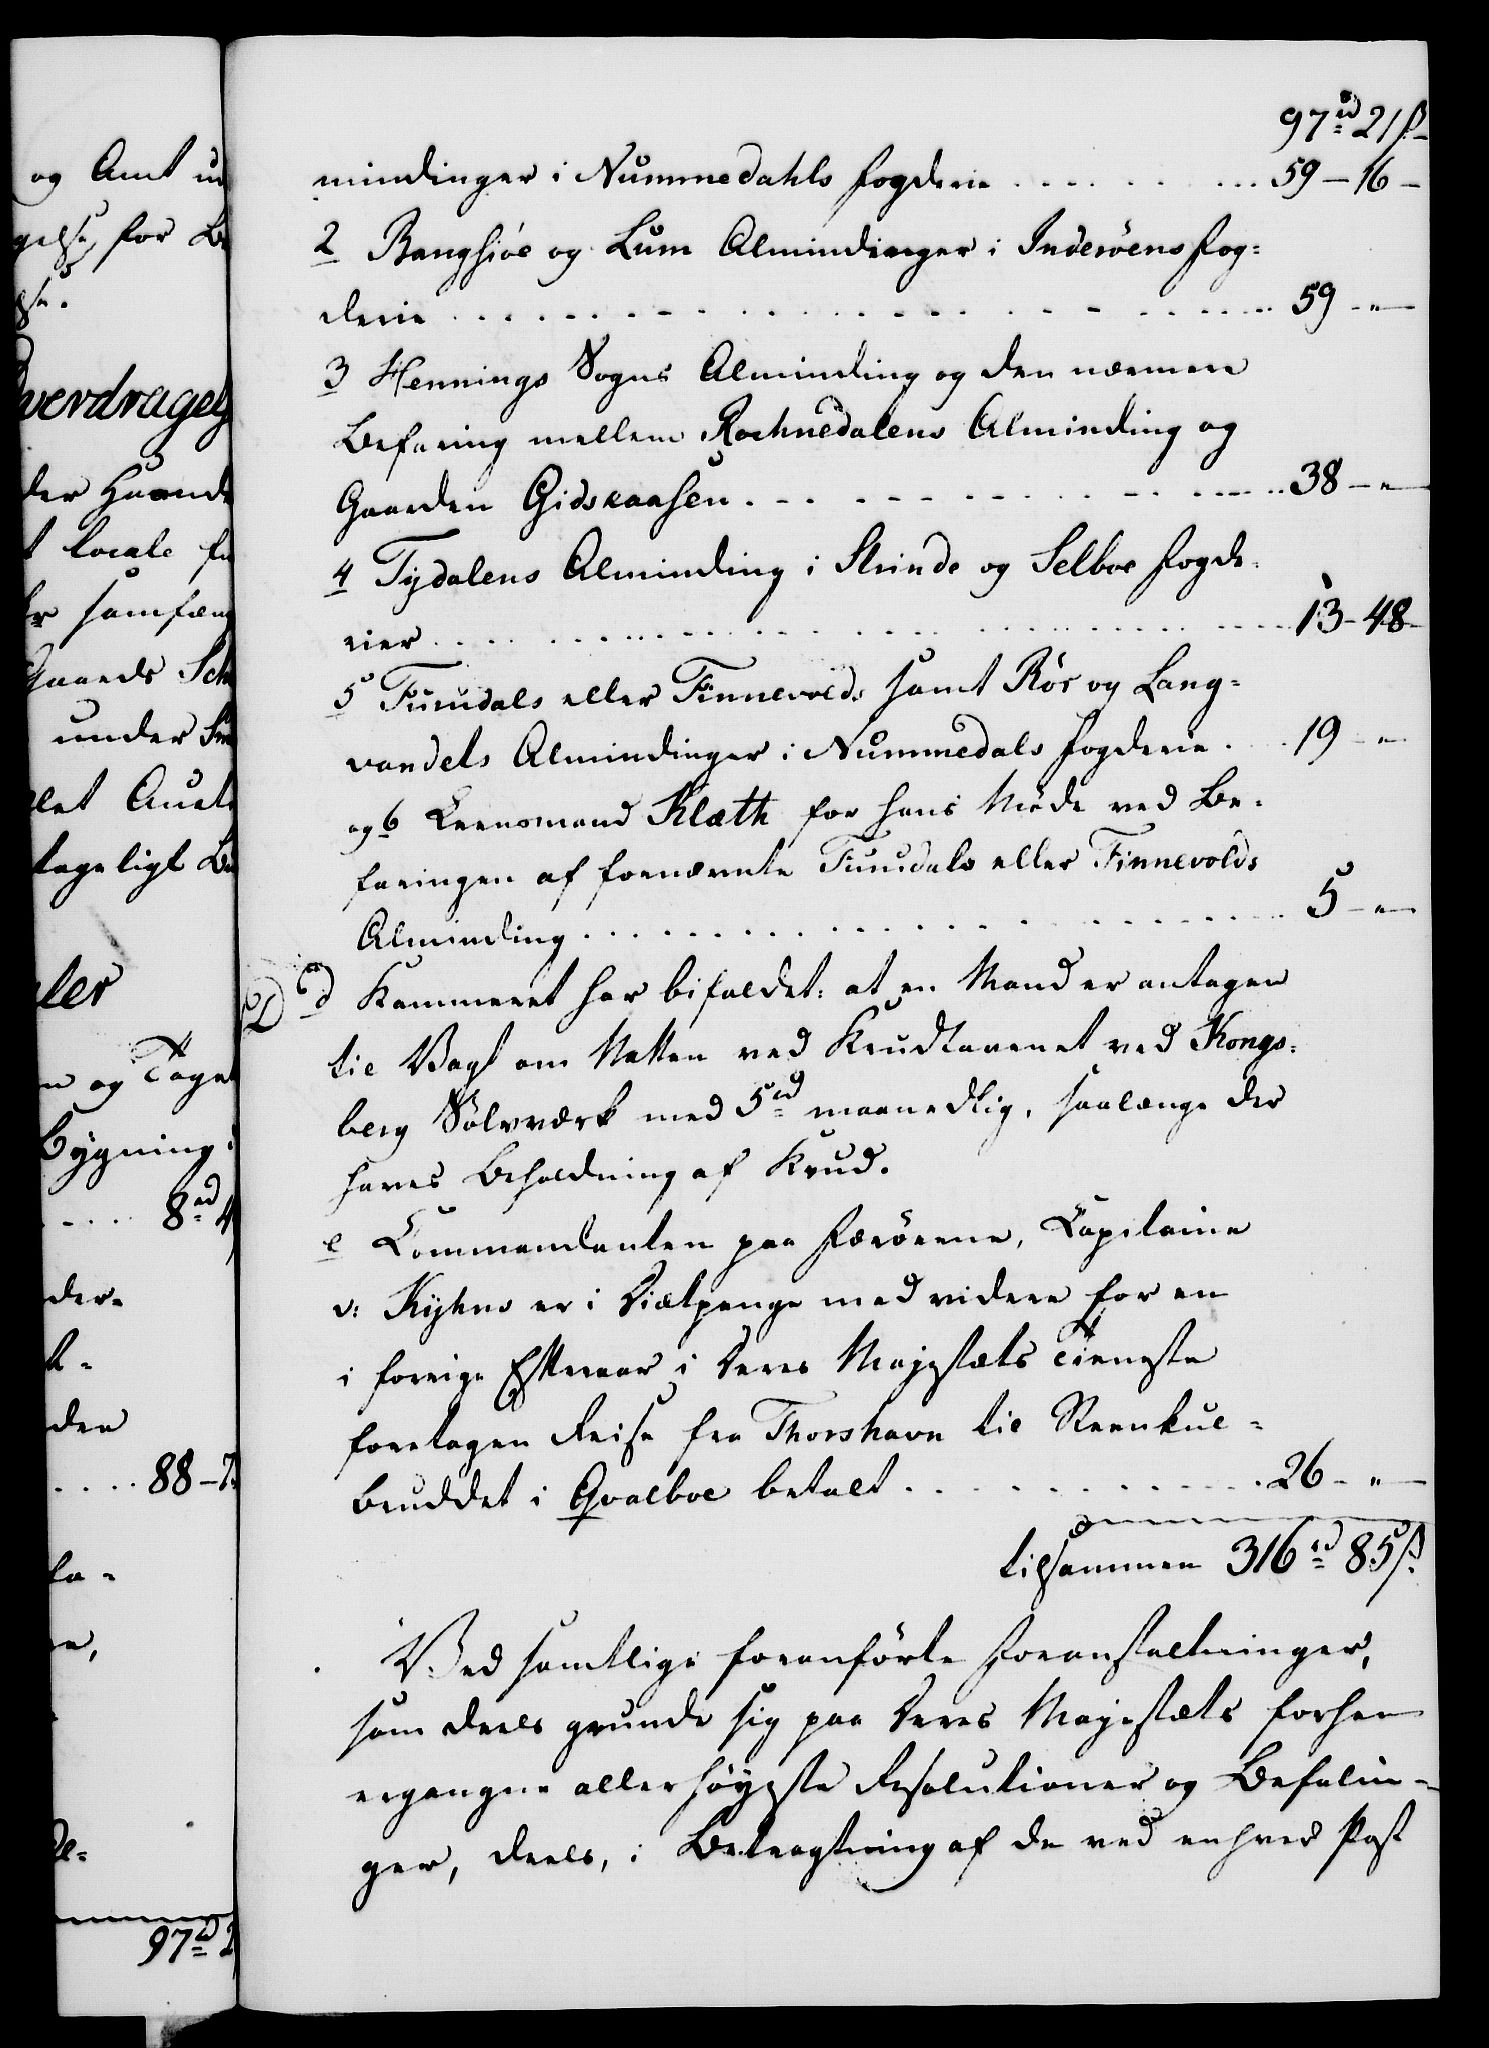 og Amt un
gelse, for Be
pse.
Overdragels
der Haande
t locale fo
er samfæng
Gaards Sch
under Sm
let Auct
tageligt Be
ler
n og Taget
bygning i
.... 8rd 4
der-
t-
den
.... 88 - 7
la-
re,
el-
97rd 2
97rd 21ß
mindinger i Nummedahls fogderie ......... 59 - 16 -
2 Bangsiöe og Lum Almindinger i Inderöens fog-
derie ........................ 59 - " -
3 Hennings Sogns Alminding og den nærmere
Befaring mellem Rochnedalens Alminding og
Gaarden Gidskaasen ................ 38 - " -
4 Tydalens Alminding i Strinde og Selboe fogde-
rier ........................ 13 - 48 -
5 Fuusdals eller Finnevolds samt Rör og Lang-
vandets Almindinger i Nummedals fogderie ... 19 - " -
og 6 Leensmand Klæth for hans Möde ved Be-
faringen af fornævnte Fuusdals eller Finnevolds
Alminding ..................... 5 - " -
d Kammeret har bifaldet: at en Mand er antagen
til Vagt om Natten ved Krudtaarnet ved Kongs-
berg Sölvværk med 5rd maanedlig, saalænge der
haves Beholdning af Krud.
e Commandanten paa Færöerne, Capitaine
v: Kyhns er i Diætpenge med videre for en
i forrige Efteraar i Deres Majestæts Tieneste
foretagen Reise fra Thorshavn til Steenkul-
bruddet i Qvalboe betalt ............. 26 - " -
tilsammen 316rd 85ß.
Ved samtlige foranförte Foranstaltninger,
som deels grunde sig paa Deres Majestæts forhen
ergangne allerhöyeste Resolutioner og Befalin-
ger, deels, i Betragtning af de ved enhver Post